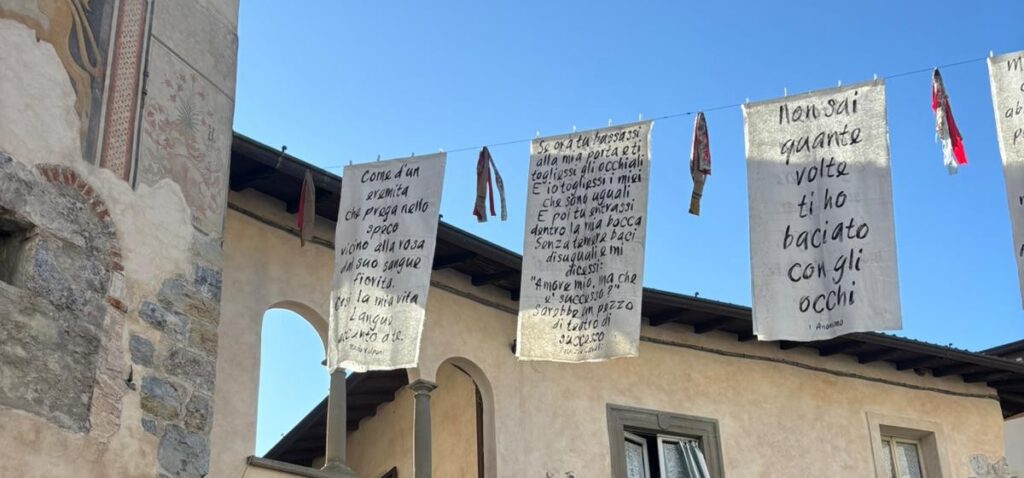 Come d'un
eremita
che prega nello
speco
vicino alla rosa
dal suo sangue
fiorita.
Così la mia vita
Langue
accanto a te.
Se ora tu bussassi
alla mia porta e ti
togliessi gli occhiali
E io togliessi i miei
che sono uguali
E poi tu entrassi
dentro la mia bocca
Senza temere baci
disuguali e mi
dicessi:
"Amore mio, ma che
è successo?"
Sarebbe un pezzo
di teatro di
successo
Non sai
quante
volte
ti ho
baciato
con gli
occhi
Anonimo